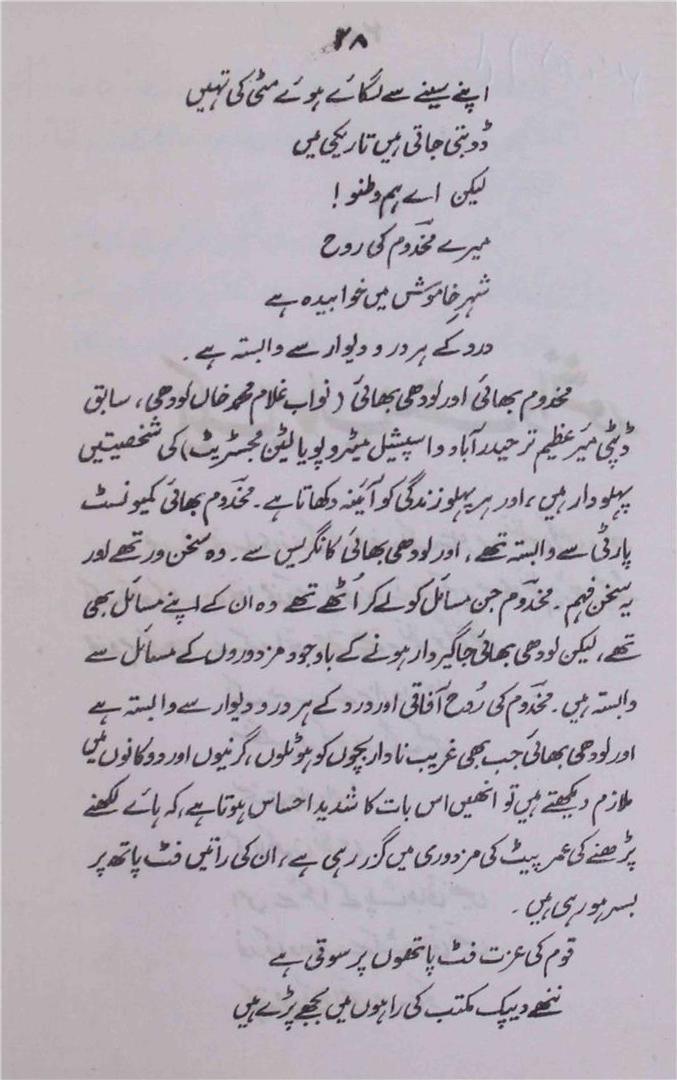 ۲۸
اپنے سینے سے لگائے ہوئے مٹی کی تہیں
ڈوبتی جاتی ہیں تاریکی میں
لیکن اے ہم وطنو!
میرے مخدوم کی روح
شہرِ خاموش میں خوابیدہ ہے
درد کے ہر در و دیوار سے وابستہ ہے۔
مخدوم بھائی اور لودھی بھائی (نواب غلام محمد خاں لودھی، سابق
ڈپٹی میئر عظیم تر حیدرآباد و اسپیشل میٹروپولیٹن مجسٹریٹ) کی شخصیتیں
پہلو دار ہیں، اور ہر پہلو زندگی کو آئینہ دکھاتا ہے۔ مخدوم بھائی کمیونسٹ
پارٹی سے وابستہ تھے، اور لودھی بھائی کانگریس سے۔ وہ سخن ور تھے اور
یہ سخن فہم۔ مخدوم جن مسائل کو لے کر اُٹھے تھے وہ ان کے اپنے مسائل بھی
تھے، لیکن لودھی بھائی جاگیردار ہونے کے باوجود مزدوروں کے مسائل سے
وابستہ ہیں۔ مخدوم کی رُوح آفاقی اور درد کے ہر در و دیوار سے وابستہ ہے
اور لودھی بھائی جب بھی غریب نادار بچوں کو ہوٹلوں، گرنیوں اور دوکانوں میں
ملازم دیکھتے ہیں تو انھیں اس بات کا شدید احساس ہوتا ہے، کہ ہائے لکھنے
پڑھنے کی عمر پیٹ کی مزدوری میں گزر رہی ہے، ان کی راتیں فٹ پاتھ پر
بسر ہو رہی ہیں۔
قوم کی عزت فٹ پاتھوں پر سوتی ہے
ننھے دیپک مکتب کی راہوں میں بجھے پڑے ہیں